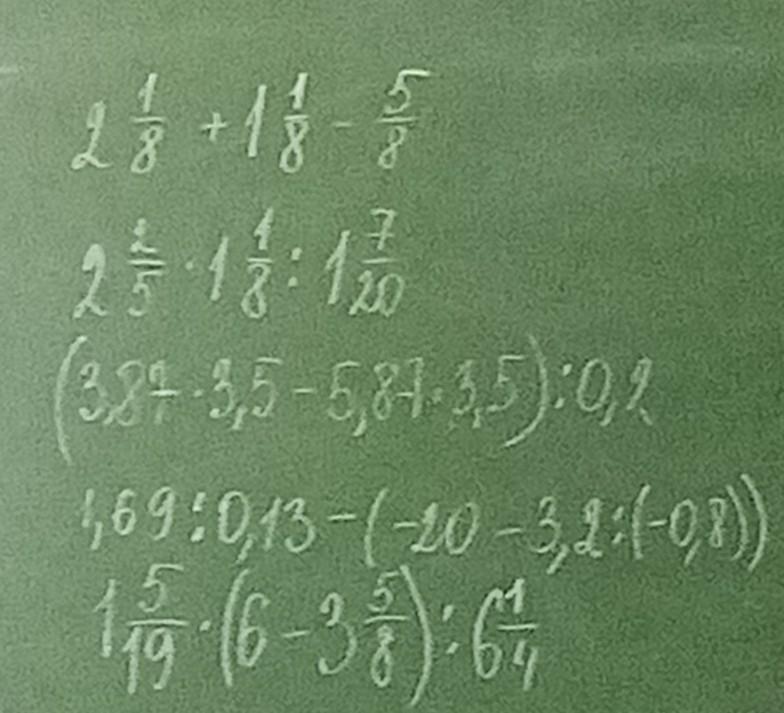 2 1/8 + 1 1/8 - 5/8
2 2/5 · 1 1/8 : 1 7/20
(3,87 · 3,5 - 5,87 · 3,5) : 0,2
1,69 : 0,13 - (-20 - 3,2 : (-0,8))
1 5/19 · (6 - 3 5/8) : 6 1/4